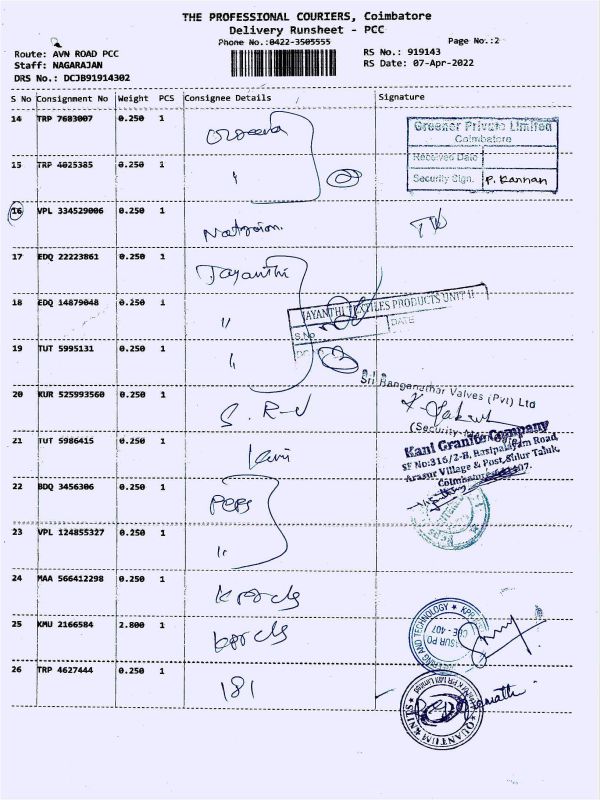 THE PROFESSIONAL COURIERS, Coimbatore
Delivery Runsheet - PCC
Phone No.:0422-3505555
Page No.:2
Route: AVN ROAD PCC
RS No.: 919143
Staff: NAGARAJAN
RS Date: 07-Apr-2022
DRS No.: DCJB91914302
S No Consignment No Weight PCS Consignee Details Signature
14 TRP 7683007 0.250 1
Greener Private Limited
Coimbatore
Received Date
Security Sign. P. Kannan
15 TRP 4025385 0.250 1 "
16 VPL 334529006 0.250 1
17 EDQ 22223861 0.250 1 Jayanthi
18 EDQ 14879048 0.250 1 "
JAYANTHI TEXTILES PRODUCTS UNIT II
S.No
DATE
19 TUT 5995131 0.250 1 "
Sri Ranganathar Valves (Pvt) Ltd
20 KUR 525993560 0.250 1
(Security
21 TUT 5986415 0.250 1
Kani Granite Company
SF No:316/2-B, Rasipalayam Road,
Arasur Village & Post, Sulur Taluk,
Coimbatore
22 BDQ 3456306 0.250 1
23 VPL 124855327 0.250 1 "
24 MAA 566412298 0.250 1
25 KMU 2166584 2.800 1
26 TRP 4627444 0.250 1 181
QUANTUM KNITS